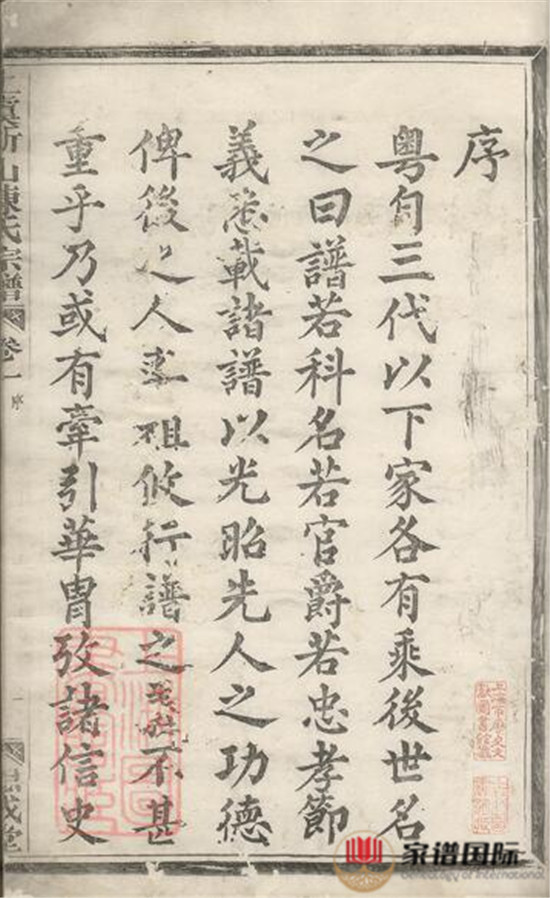 序
粤自三代以下家各有乘後世名
之曰譜若科名若官爵若忠孝節
義悉載諸譜以光昭先人之功德
俾後之人率祖攸行譜之不甚
重乎乃或有牽引華胄攷諸信史
新山陳氏宗譜
卷一
序
一
誠堂
家谱国际
Genealogy of International